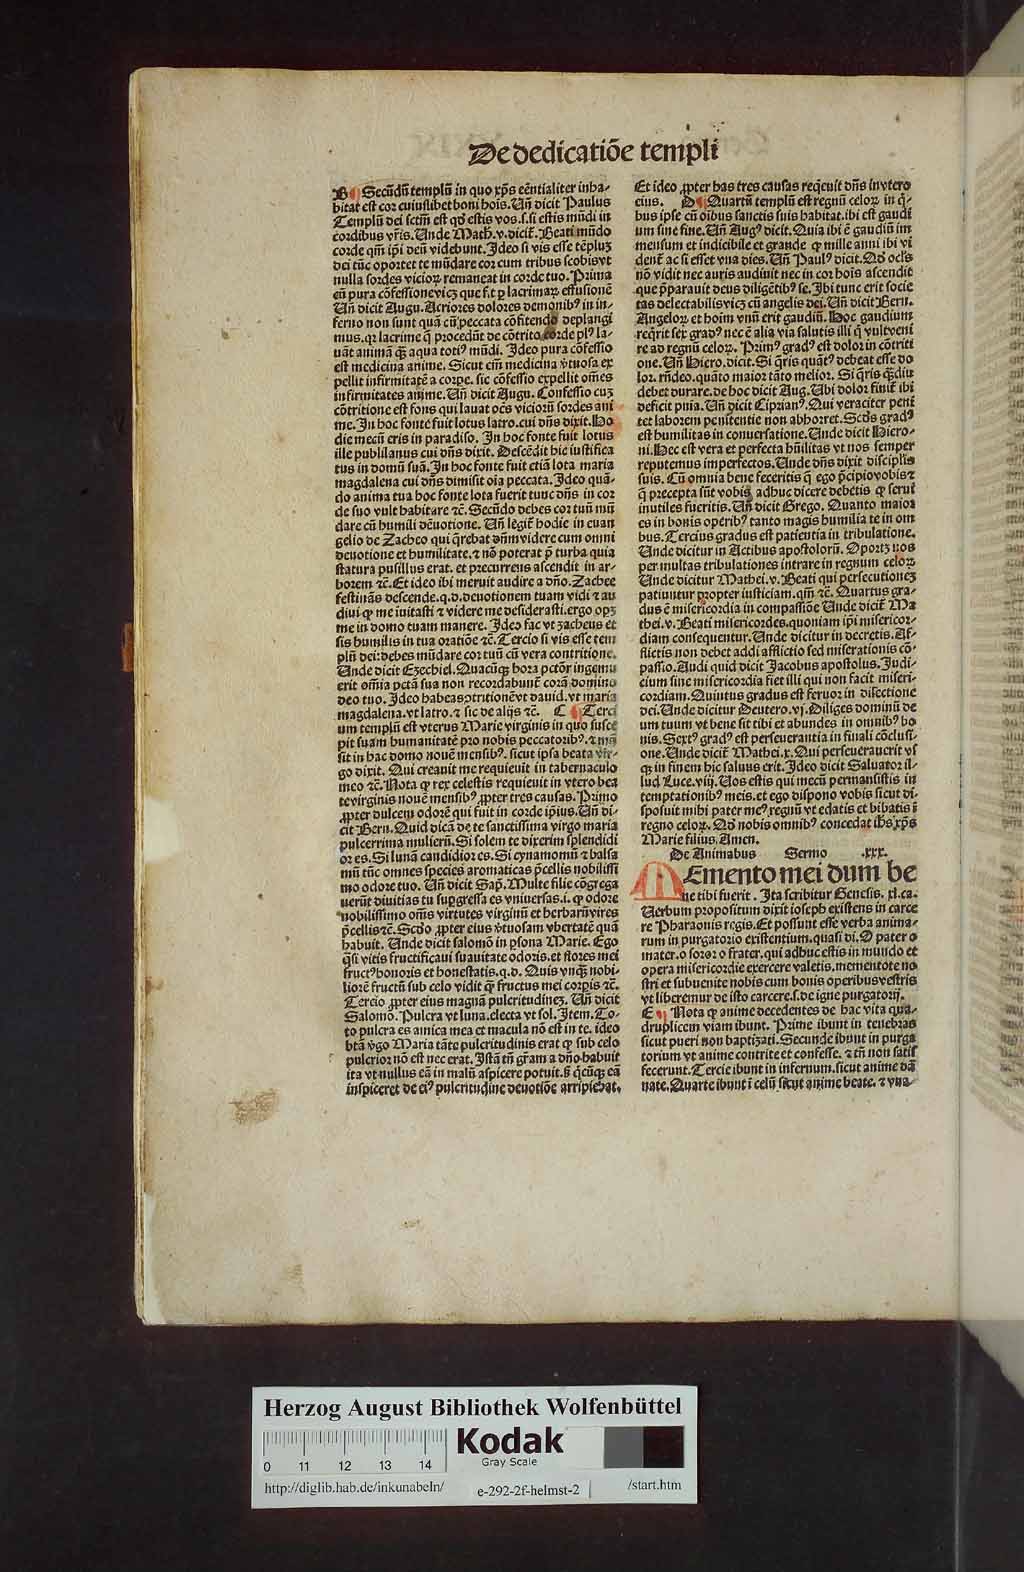 De dedicatiōe templi
B¶ Secūdū templū in quo xp̄s eēntialiter inha-
bitat est cor cuiuslibet boni hoīs. Uñ dicit Paulus
Templū dei sctm̄ est qd̓ estis vos. s. si estis mūdi in
cordibus vr̄is. Unde Math. v. dicit̄. Beati mūdo
corde qm̄ ip̄i deū videbunt. Ideo si vis esse tēpluꝫ
dei tūc oportet te mūdare cor cum tribus scobis vt
nulla sordes vicioꝝ remaneat in corde tuo. Prima
eū pura cōfessione viꝫ que f.t ꝑ lacrimaꝝ effusionē
Uñ dicit Augu. Acriores dolores demonibꝰ in in-
ferno non sunt quā cū peccata cōfitendo deplangi
mus. qꝛ lacrime q̄ procedūt de cōtrito corde plꝰ la-
uāt animā qꝫ aqua totiꝰ mūdi. Ideo pura cōfessio
est medicina anime. Sicut eīm medicina v̓tuosa ex
pellit infirmitatē a corpe. sic cōfessio expellit om̄es
infirmitates anime. Uñ dicit Augu. Confessio cuꝫ
cōtritione est fons qui lauat oēs vicioruꝫ sordes ani
me. In hoc fonte fuit lotus latro. cui dn̄s dixit. Ho
die mecū eris in paradiso. In hoc fonte fuit lotus
ille publilanus cui dn̄s dixit. Descēdit hic iustifica
tus in domū suā. In hoc fonte fuit etiā lota maria
magdalena cui dn̄s dimisit oīa peccata. Ideo quā-
do anima tua hoc fonte lota fuerit tunc dn̄s in cor
de suo vult habitare ⁊c̄. Secūdo debes cor tuū mū
dare cū humili deuotione. Uñ legit̄ hodie in euan
gelio de Zacheo qui q̄rebat dn̄m videre cum omni
deuotione et humilitate. ⁊ nō poterat p̄ turba quia
statura pusillus erat. et precurrens ascendit in ar-
borem ⁊c̄. Et ideo ibi meruit audire a dn̄o. Zachee
festinās descende. q. d. deuotionem tuam vidi ⁊ au
diui ꝙ me iuitasti ⁊ videre me desiderasti. ergo opꝫ
me in domo tuam manere. Ideo fac vt zacheus et
sis humilis in tua oratiōe ⁊c̄. Tercio si vis esse tem
plū dei: debes mūdare cor tuū cū vera contritione.
Unde dicit Ezechiel. Quacūqꝫ hora pctōr ingemu
erit om̄ia pctā sua non recordabunt̄ corā domino
deo tuo. Ideo habeas ꝯtritionē vt dauid. vt maria
magdalena. vt latro. ⁊ sic de alijs ⁊c̄. C ¶ Terci
um templū est vterus Marie virginis in quo susce
pit suam humanitatē pro nobis peccatoribꝰ. ⁊ mā
sit in hac domo nouē mensibꝰ. sicut ipsa beata vir-
go dixit. Qui creauit me requieuit in tabernaculo
meo ⁊c̄. Nota ꝙ rex celestis requieuit in vtero bea
te virginis nouē mensibꝰ ꝓpter tres causas. Primo
ꝓpter dulcem odorē qui fuit in corde ip̄ius. Uñ di-
cit Bern. Quid dicā de te sanctissima virgo maria
pulcerrima mulierū. Si solem te dixerim splendidi
or es. Si lunā candidior es. Si cynamomū ⁊ balsa
mū tūc omnes species aromaticas p̄cellis nobilissi
mo odore tuo. Uñ dicit Sap̄. Multe filie cōgrega
uerūt diuitias tu supgressa es vniuersas. i. ꝙ odore
nobilissimo om̄s virtutes virginū et herbarū vires
p̄cellis ⁊c̄. Scd̓o ꝓpter eius v̓tuosam vbertatē quā
habuit. Unde dicit salomō in ꝑsona Marie. Ego
q̄si vitis fructificaui suauitate odoris. et flores mei
fructꝰ honoris et honestatis. q. d. Quis vnqꝫ nobi-
liorē fructū sub celo vidit q̄ fructus mei corpis ⁊c̄.
Tercio ꝓpter eius magnā pulcritudineꝫ. Uñ dicit
Salomō. Pulcra vt luna. electa vt sol. Item. To-
to pulcra es amica mea et macula nō est in te. ideo
btā v̓go Maria tāte pulcritudinis erat ꝙ sub celo
pulcrior nō est nec erat. Istā tn̄ gr̄am a dn̄o habuit
ita vt nullus eā in malū aspicere potuit. s̄ q̄cūqꝫ eā
inspiceret de eiꝰ pulcritudine deuotiōe arripiebat.
Et ideo ꝓpter has tres causas reqeuit dn̄s in vtero
eius. D¶ Quartū templū est regnū celoꝝ in q̄-
bus ipse cū oībus sanctis suis habitat. ibi est gaudi
um sine fine. Uñ Augꝰ dicit. Quia ibi ē gaudiū im
mensum et indicibile et grande ꝙ mille anni ibi vi
dent̄ ac si esset vna dies. Uñ Paulꝰ dicit. Qd̓ ocl̓s
nō vidit nec auris audiuit nec in cor hoīs ascendit
que p̄parauit deus diligētibꝰ se. Ibi tunc erit socie
tas delectabilis viꝫ cū angelis dei. Uñ dicit Bern.
Angeloꝝ et hoīm vnū erit gaudiū. Hoc gaudium
reqrit sex gradꝰ nec ē alia via salutis illi q̄ vult veni
re ad regnū celoꝝ. Primꝰ gradꝰ est dolor in cōtriti
one. Uñ Hiero. dicit. Si q̄ris quātꝰ debeat esse do
lor. rñdeo. quāto maior tāto melior. Si q̄ris qꝫdiu
debet durare. de hoc dicit Aug. Ubi dolor finit̄ ibi
deficit pn̄ia. Uñ dicit Ciprianꝰ. Qui veraciter peni
tet laborem penitentie non abhorret. Scd̓s gradꝰ
est humilitas in conuersatione. Unde dicit Hiero-
ni. Hec est vera et perfecta hūilitas vt nos semper
reputemus imperfectos. Unde dn̄s dixit discipl̓is
suis. Cū omnia bene feceritis q̄ ego p̄cipio vobis ⁊
q̄ precepta sūt vobis adhuc dicere debetis ꝙ serui
inutiles fueritis. Uñ dicit Grego. Quanto maior
es in bonis operibꝰ tanto magis humilia te in om
bus. Tercius gradus est patientia in tribulatione.
Unde dicitur in Actibus apostolorū. Oportꝫ nos
per multas tribulationes intrare in regnum celoꝝ
Unde dicitur Mathei. v. Beati qui persecutioneꝫ
patiuntur propter iusticiam. qm̄ ⁊c̄. Quartus gra-
dus ē misericordia in compassiōe Unde dicit̄ Ma
thei. v. Beati misericordes. quoniam ip̄i misericor-
diam consequentur. Unde dicitur in decretis. Af-
flictis non debet addi afflictio sed miserationis cō-
passio. Audi quid dicit Jacobus apostolus. Judi-
cium sine misericordia fiet illi qui non facit miseri-
cordiam. Quiutus gradus est feruor in dilectione
dei. Unde dicitur Deutero. vj. Diliges dominū de
um tuum vt bene sit tibi et abundes in omnibꝰ bo
nis. Sextꝰ gradꝰ est perseuerantia in finali cōclusi-
one. Unde dicit̄ Mathei. x. Qui perseuerauerit vs
qꝫ in finem hic saluus erit. Ideo dicit Saluator il-
lud Luce. viij. Uos estis qui mecū permansistis in
temptationibꝰ meis. et ego dispono vobis sicut di-
sposuit mihi pater meꝰ regnū vt edatis et bibatis ī
regno celoꝝ. Qd̓ nobis omnibꝰ concedat ih̄s xp̄s
Marie filius. Amen.
De Animabus Sermo .xxx.
MEmento mei dum be
ne tibi fuerit. Ita scribitur Genesis. xl. ca.
Uerbum propositum dixit ioseph existens in carce
re Pharaonis regis. Et possunt esse verba anima-
rum in purgatorio existentium. quasi di. O pater o
mater. o soror o frater. qui adhuc estis in mundo et
opera misericordie exercere valetis. mementote no
stri et subuenite nobis cum bonis operibus vestris
vt liberemur de isto carcere. s. de igne purgatorij.
E ¶ Nota ꝙ anime decedentes de hac vita qua-
druplicem viam ibunt. Prime ibunt in tenebras
sicut pueri non baptizati. Secunde ibunt in purga
torium vt anime contrite et confesse. ⁊ tn̄ non satis
fecerunt. Tercie ibunt in infernum. sicut anime dā
nate. Quarte ibunt ī celū sicut anime beate. ⁊ vna-
Herzog August Bibliothek Wolfenbüttel
0 11 12 13 14
Kodak
Gray Scale
http://diglib.hab.de/inkunabeln/ e-292-2f-helmst-2 /start.htm